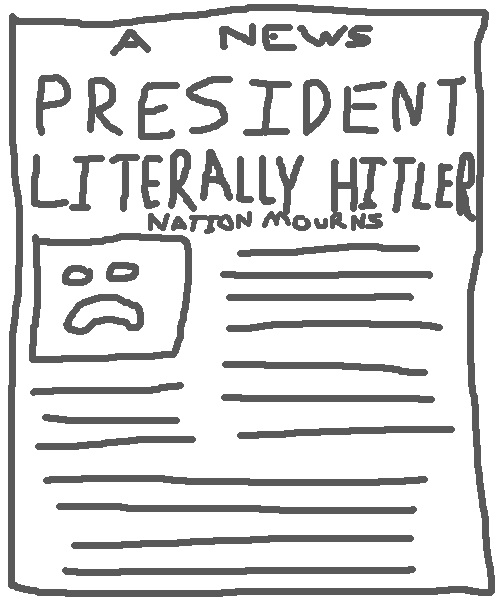 A NEWS
PRESIDENT
LITERALLY HITLER
NATION MOURNS